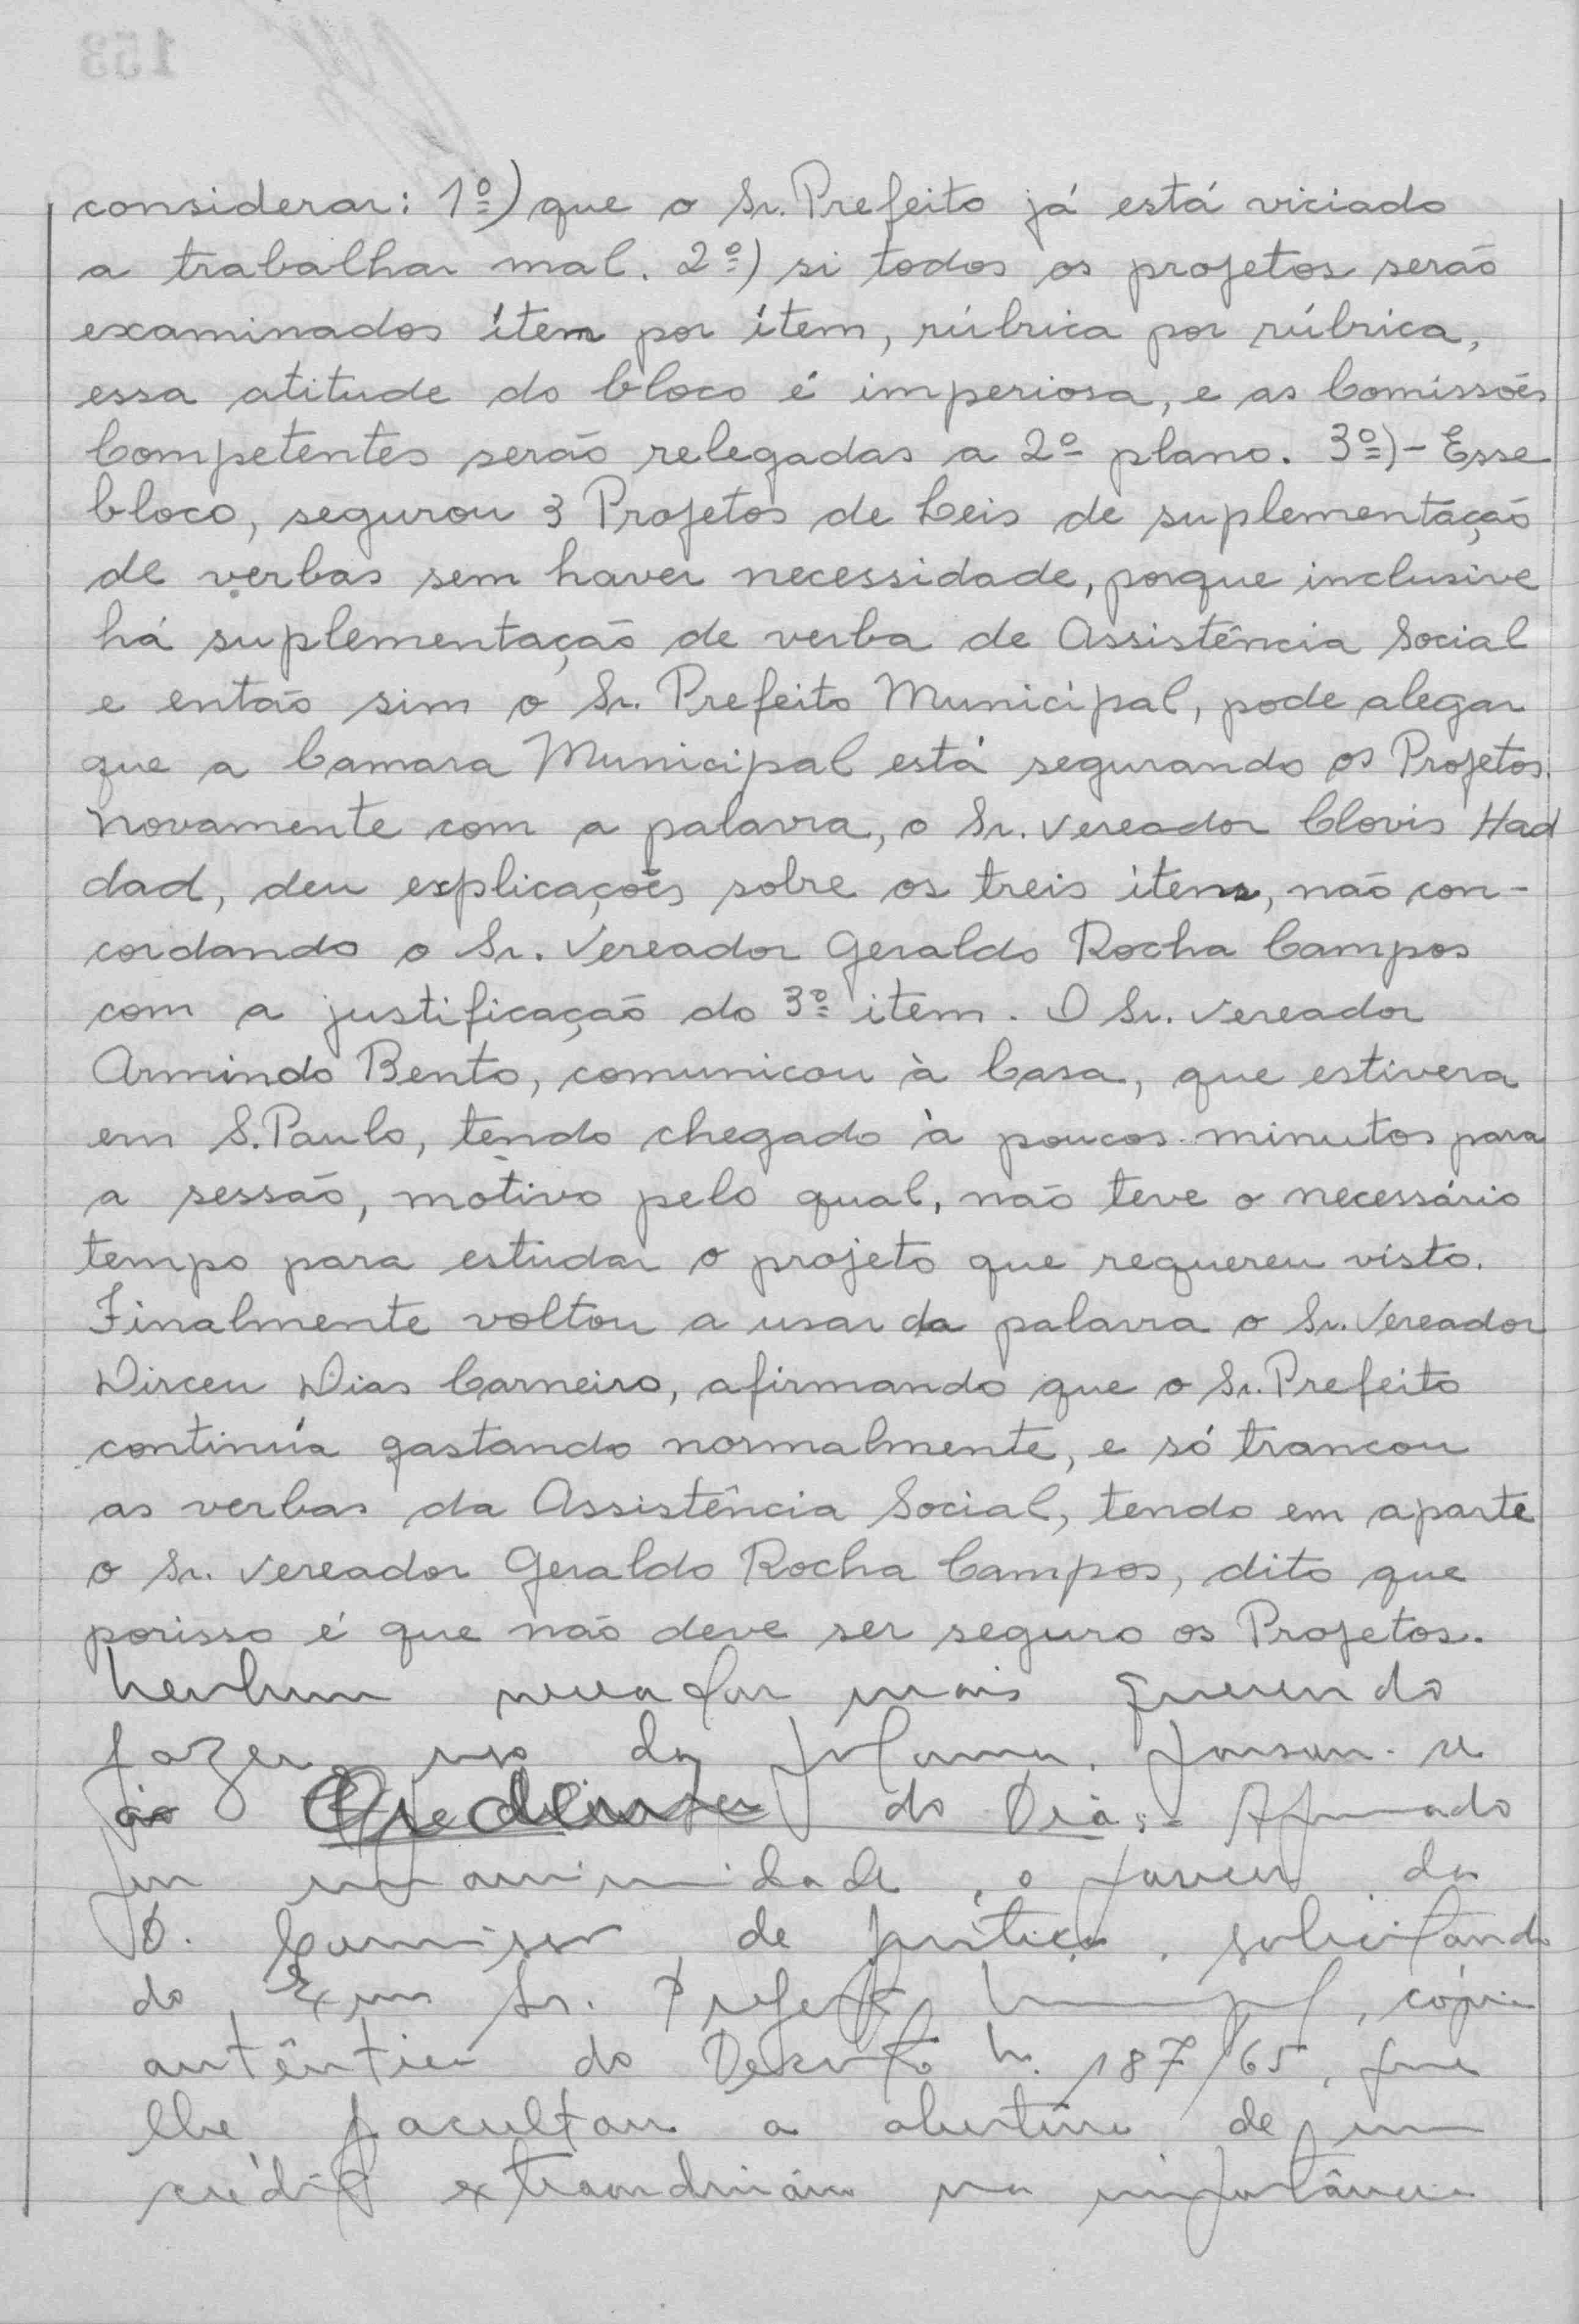 considerar: 1º) que o Sr. Prefeito já está viciado
a trabalhar mal. 2º) si todos os projetos serão
examinados ítem por ítem, rúbrica por rúbrica,
essa atitude do bloco é imperiosa, e as Comissões
Competentes serão relegadas a 2º plano. 3º) - Esse
bloco, segurou 3 Projetos de Leis de suplementação
de verbas sem haver necessidade, porque inclusive
há suplementação de verba de Assistência Social
e então sim o Sr. Prefeito Municipal, pode alegar
que a Camara Municipal está segurando os Projetos.
Novamente com a palavra, o Sr. Vereador Clovis Had
dad, deu explicações sobre os treis ítens, não con-
cordando o Sr. Vereador Geraldo Rocha Campos
com a justificação do 3º item. O Sr. Vereador
Armindo Bento, comunicou à Casa, que estivera
em S. Paulo, tendo chegado à poucos minutos para
a sessão, motivo pelo qual, não teve o necessário
tempo para estudar o projeto que requereu visto.
Finalmente voltou a usar da palavra o Sr. Vereador
Dirceu Dias Carneiro, afirmando que o Sr. Prefeito
continúa gastando normalmente, e só trancou
as verbas da Assistência Social, tendo em aparte
o Sr. Vereador Geraldo Rocha Campos, dito que
porisso é que não deve ser seguro os Projetos.
Nenhum vereador mais querendo
fazer uso da palavra, passou-se
à do Dia:- Aprovado
por unanimidade, o parecer da
D. Comissão de Justiça, solicitando
do Exmo Sr. Prefeito Municipal, cópia
autêntica do Decreto n. 187/65, que
lhe facultou a abertura de um
crédito extraordinário na importância